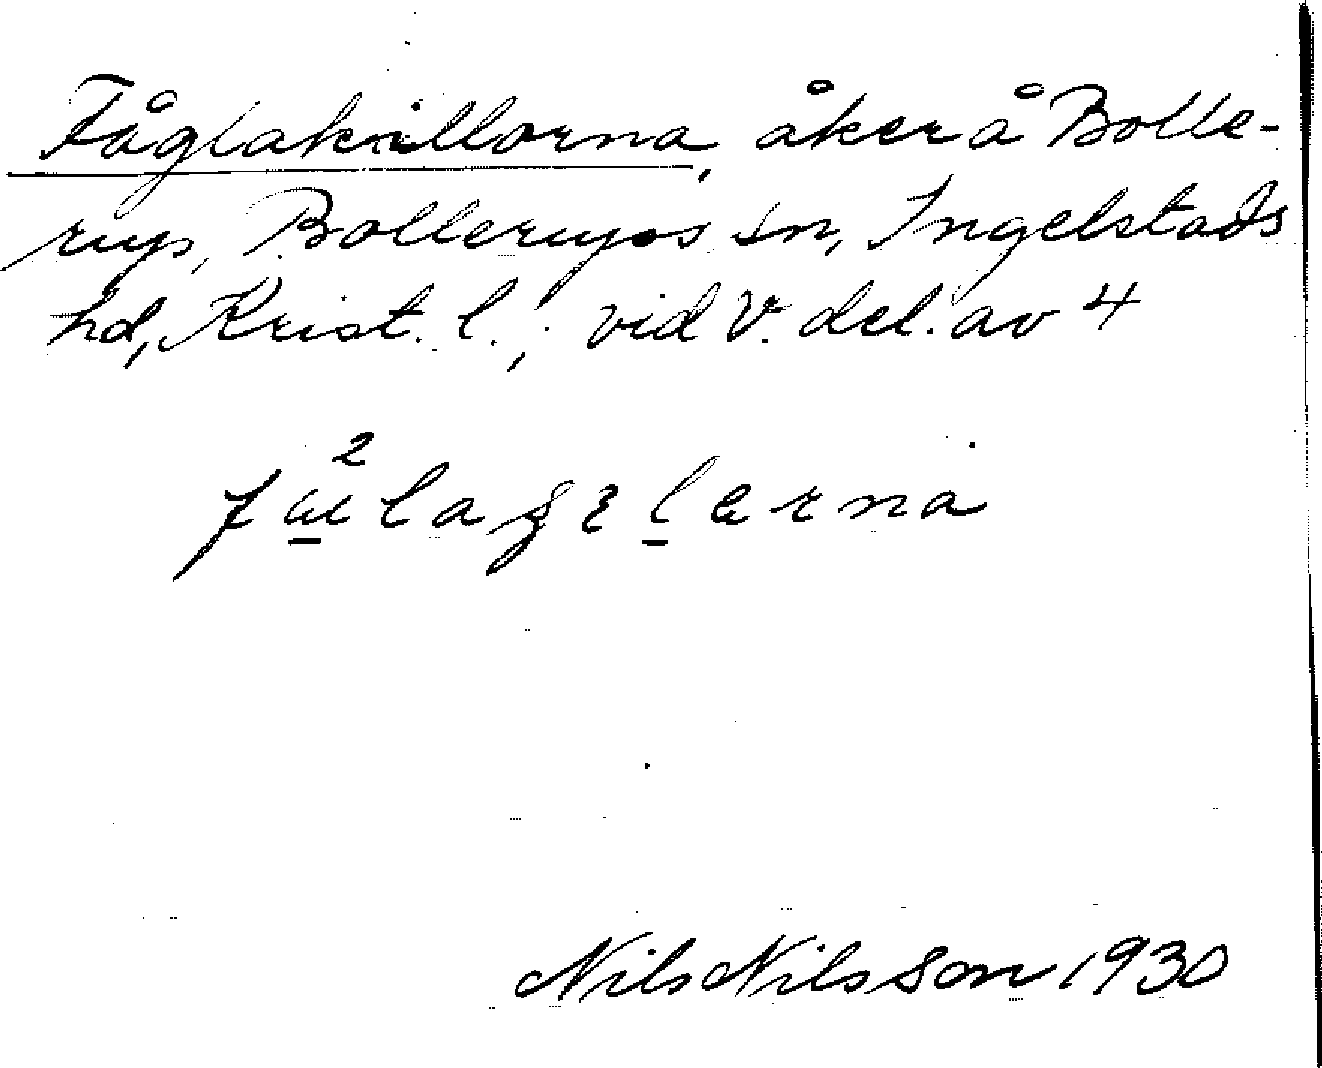 Fåglakillorna, åker å Bolle-
rup, Bollerups sn, Ingelstads
hd, Krist. l., vid V. del. av 4
Nils Nilsson 1930